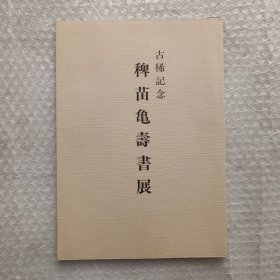 古稀記念
稗苗亀壽書展